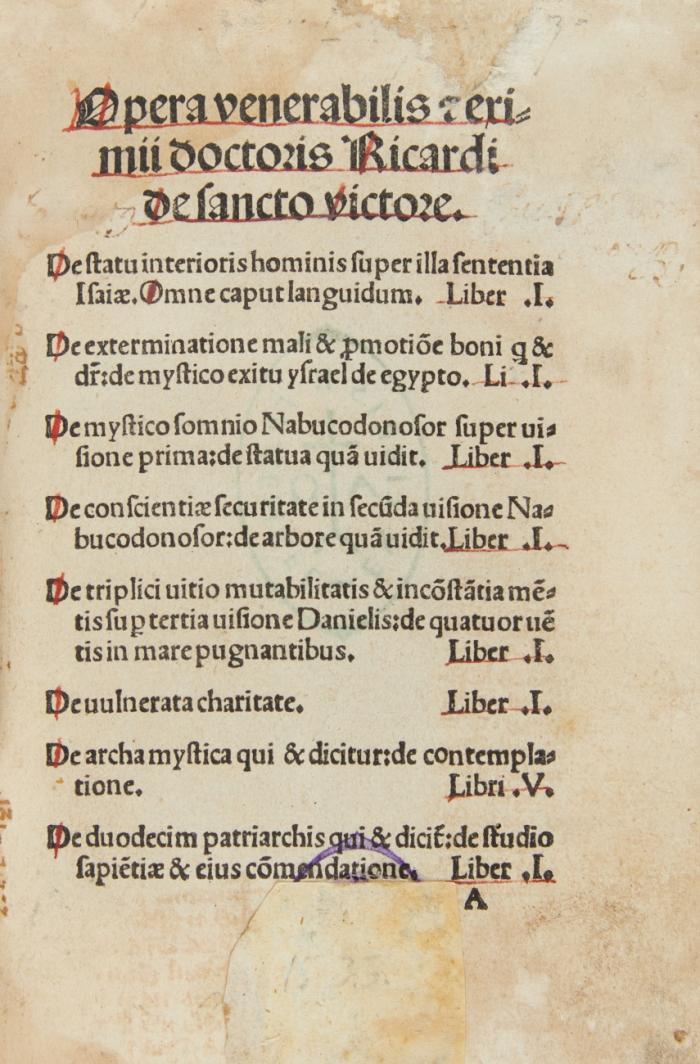 Opera venerabilis ⁊ exi⸗
mii doctoris Ricardi
de sancto victore.
De ſtatu interioris hominis ſuper illa ſententia
Iſaiæ. Omne caput languidum. Liber .I.
De exterminatione mali & ꝓmotiõe boni q &
dr̃: de myſtico exitu yſrael de egypto. Li .I.
De myſtico ſomnio Nabucodonoſor ſuper ui⸗
ſione prima: de ſtatua quã uidit. Liber .I.
De conſcientiæ ſecuritate in ſecũda uiſione Na⸗
bucodonoſor: de arbore quã uidit. Liber .I.
De triplici uitio mutabilitatis & incõſtãtia mẽ⸗
tis ſuꝑ tertia uiſione Danielis: de quatuor uẽ
tis in mare pugnantibus. Liber .I.
De uulnerata charitate. Liber .I.
De archa myſtica qui & dicitur: de contempla⸗
tione. Libri .V.
De duodecim patriarchis qui & dicit̃: de ſtudio
ſapiẽtiæ & eius cõmendatione. Liber .I.
A